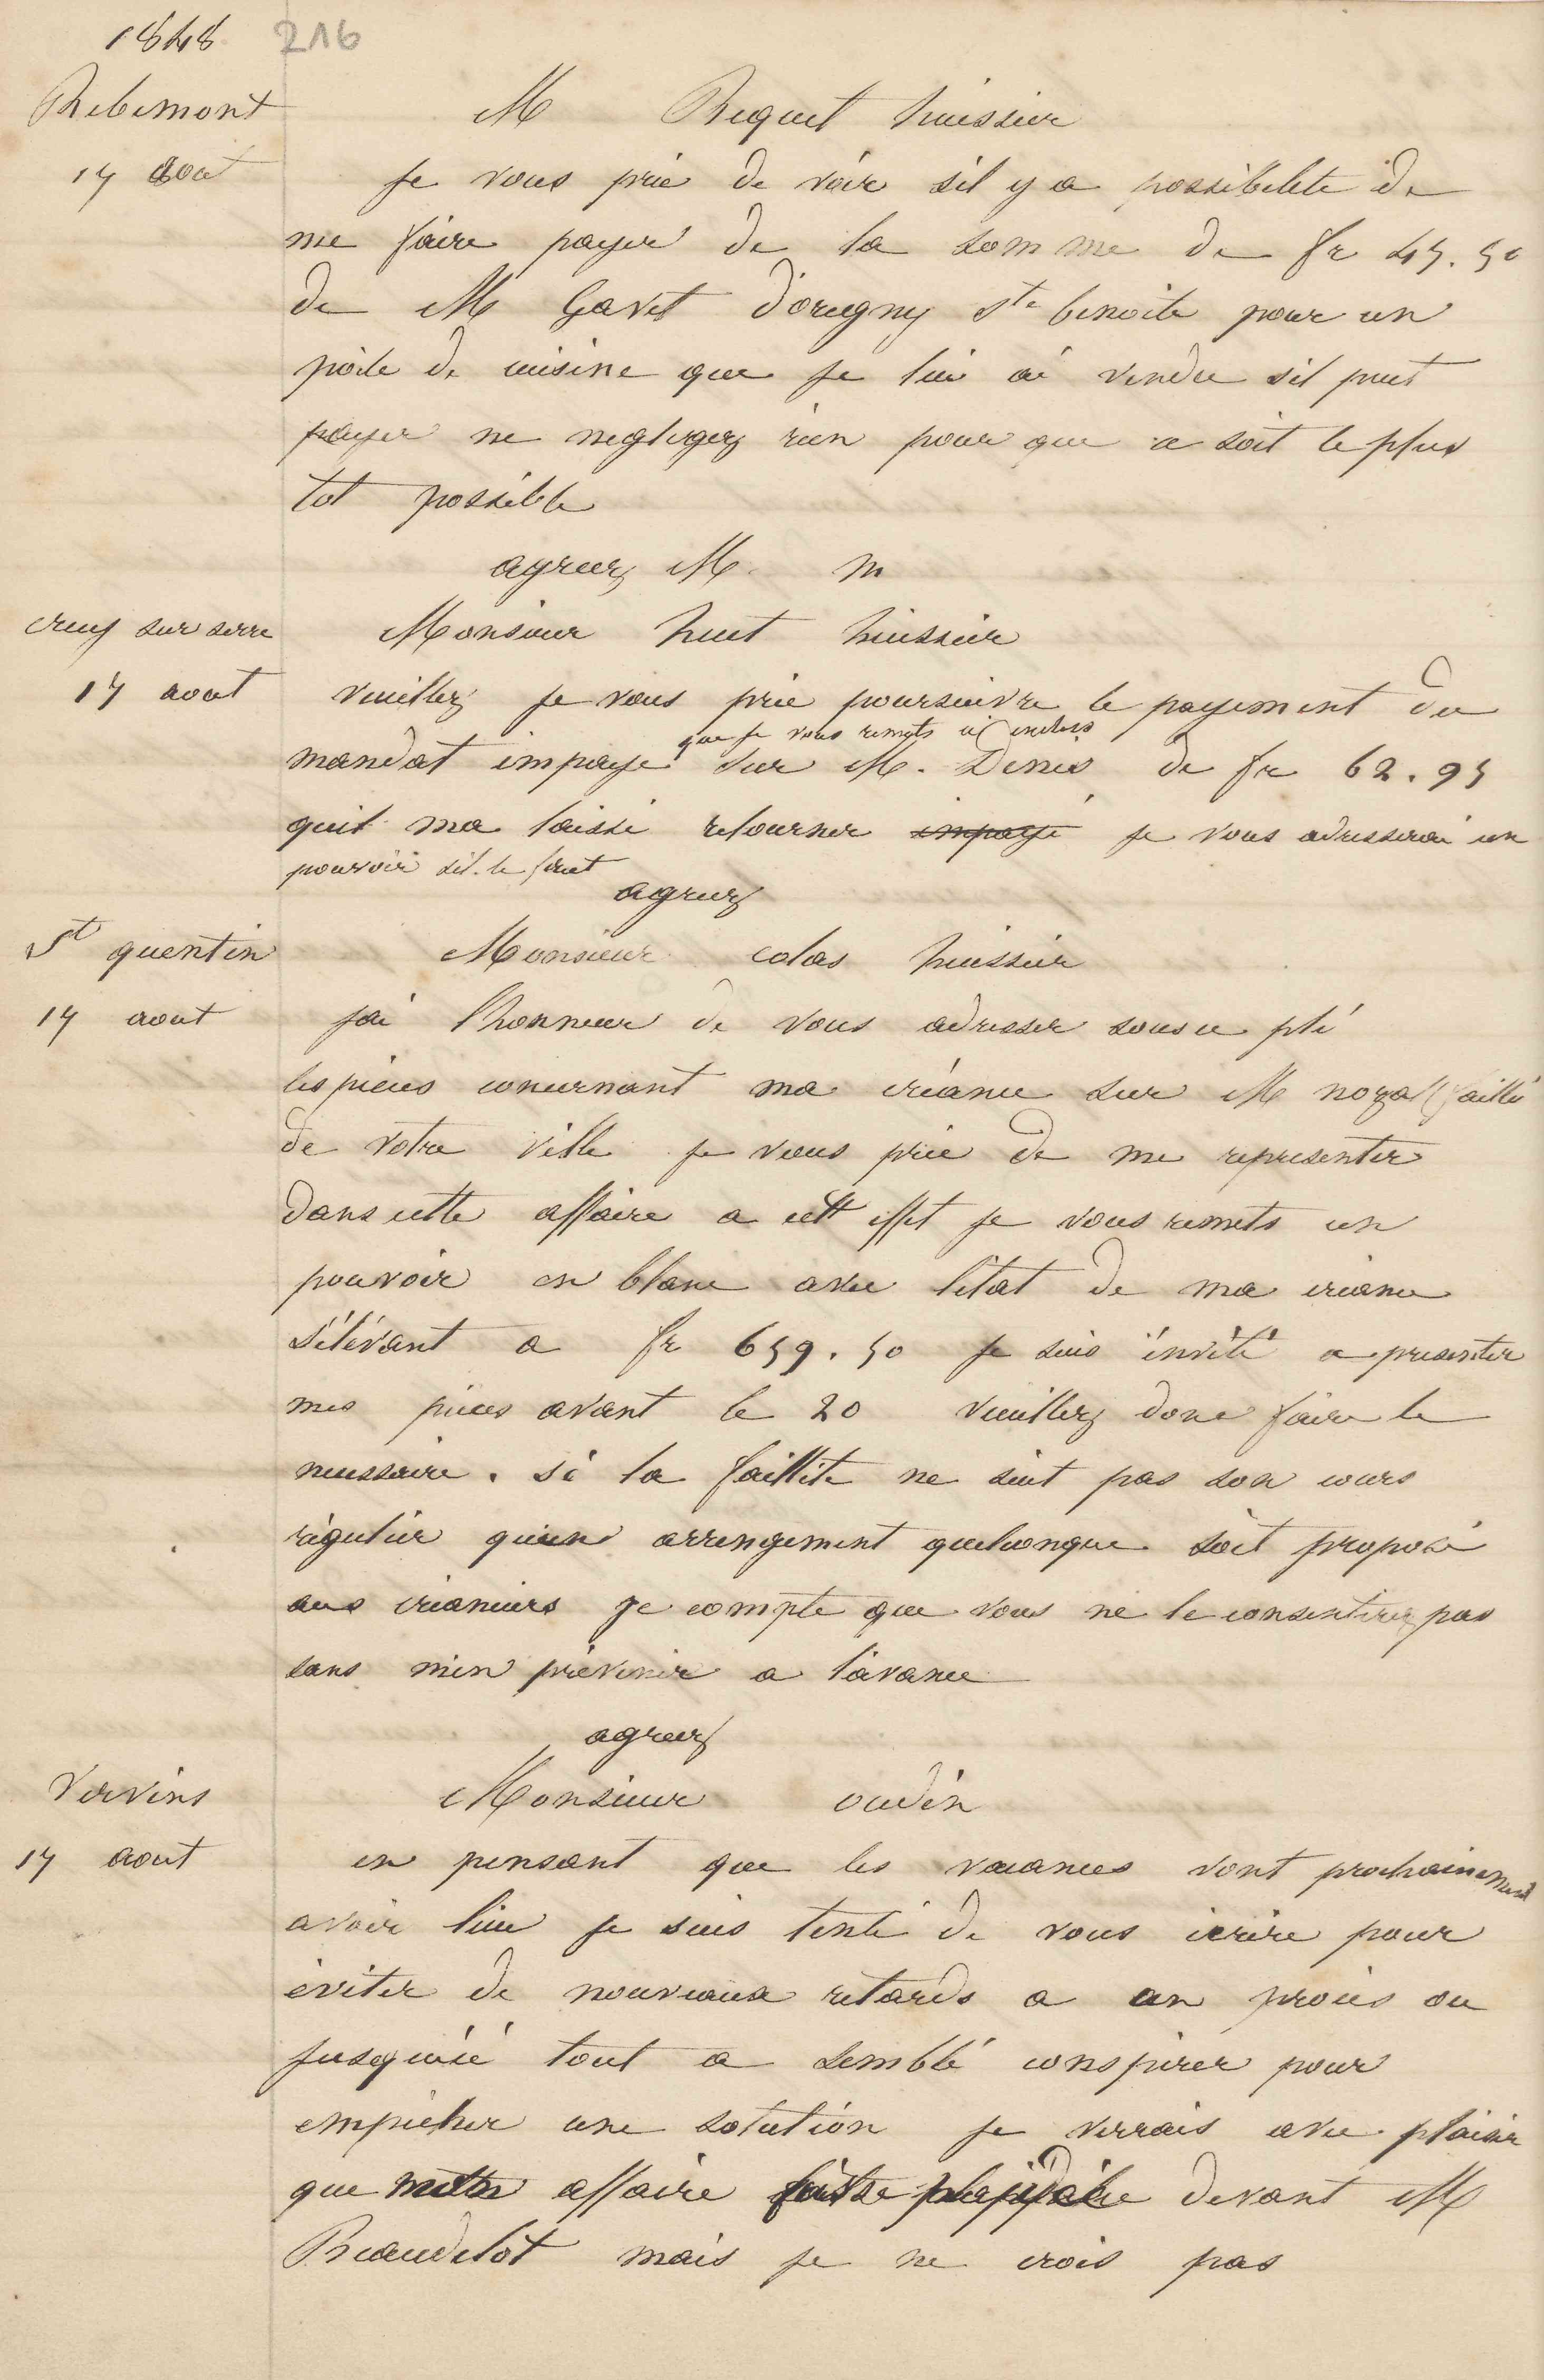 1848 216
Ribemont M Riquet huissier
17 aout je vous prie de voir sil y a possibilité de
me faire payer de la somme de fr 45.50
de M Gavet d'origny Ste benoite pour un
poële de cuisine que je lui ai vendu sil peut
payer ne negligez rien pour que ce soit le plus
tot possible
agreez M.
crecy sur serre Monsieur huet huissier
17 aout veuillez je vous prie poursuivre le payement du
que je vous remets ci inclus
mandat impayé sur M. Denis de fr 62.95
quil ma laissé retourner impayé je vous adresserai un
pouvoir sil le faut
agreez
St quentin Monsieur colas huissier
17 aout jai l'honneur de vous adresser sous ce pli
les pieces concernant ma créance sur M failli
de votre ville je vous prie de me representer
dans cette affaire a cett effet je vous remets un
pouvoir en blanc avec létat de ma créance
s'élévant a fr 659.50 je suis invité a presenter
mes pieces avant le 20 veuillez donc faire le
necessaire. si la faillite ne suit pas son cours
régulier qu'un arrengement quelconque soit proposé
aux créanciers je compte que vous ne le consentirez pas
sans m'en prévenir a l'avance
agreez
Vervins Monsieur oudin
17 aout en pensant que les vacances vont prochainement
avoir lieu je suis tenté de vous écrire pour
éviter de nouveaux retards a un procès ou
jusqu'ici tout a semblé conspirer pour
empêcher une solution je verrais avec plaisir
que notre affaire devant M
Beaudelot mais je ne crois pas